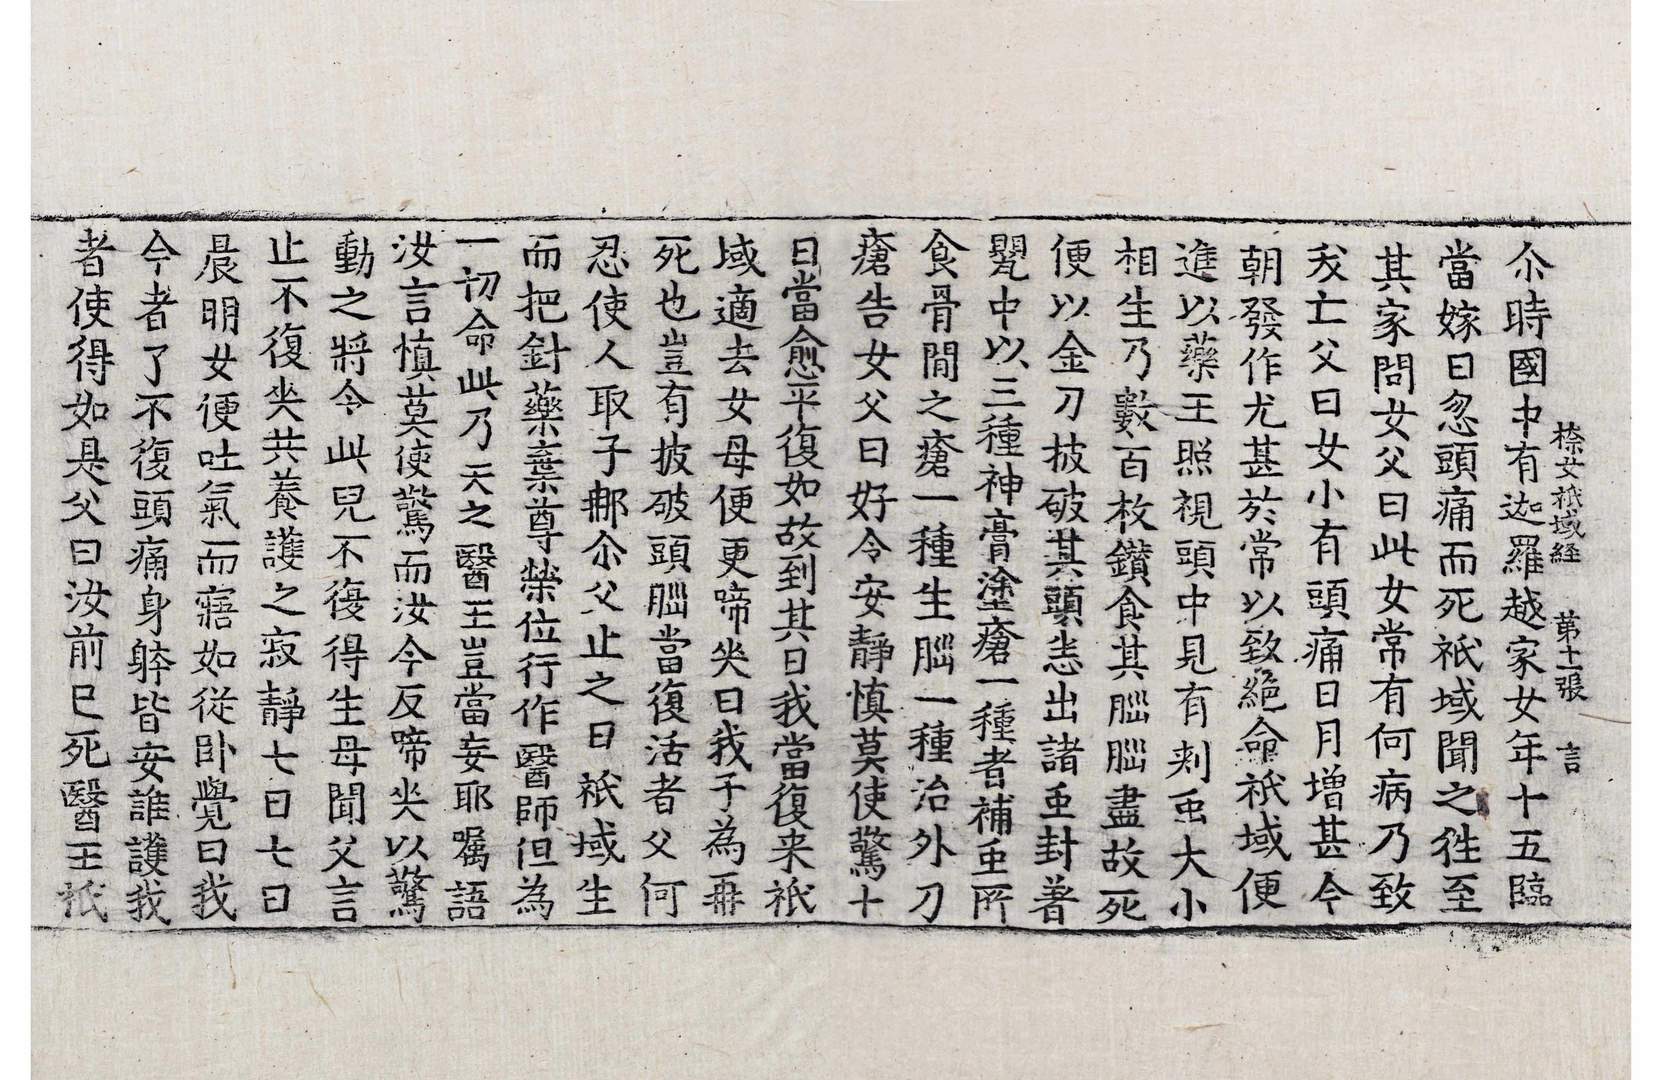 㮈女祇域経 第十一張 言
尒時國中有迦羅越家女年十五臨
當嫁日忽頭痛而死祇域聞之徃至
其家問女父曰此女常有何病乃致
夭亡父曰女小有頭痛日月增甚今
朝發作尤甚於常以致絶命祇域便
進以藥王照視頭中見有刾虫大小
相生乃數百枚鑽食其腦腦盡故死
便以金刀披破其頭悉出諸虫封著
甖中以三種神膏塗瘡一種者補虫所
食骨間之瘡一種生腦一種治外刀
瘡告女父曰好令安靜慎莫使驚十
日當愈平復如故到其日我當復来祇
域適去女母便更啼哭曰我子為再
死也豈有披破頭腦當復活者父何
忍使人取子那尒父止之曰祇域生
而把針藥棄尊榮位行作醫師但為
一切命此乃天之醫王豈當妄耶囑語
汝言慎莫使驚而汝今反啼哭以驚
動之將令此兒不復得生母聞父言
止不復哭共養護之寂靜七日七日
晨明女便吐氣而寤如從卧覺曰我
今者了不復頭痛身躰皆安誰護我
者使得如是父曰汝前已死醫王祇